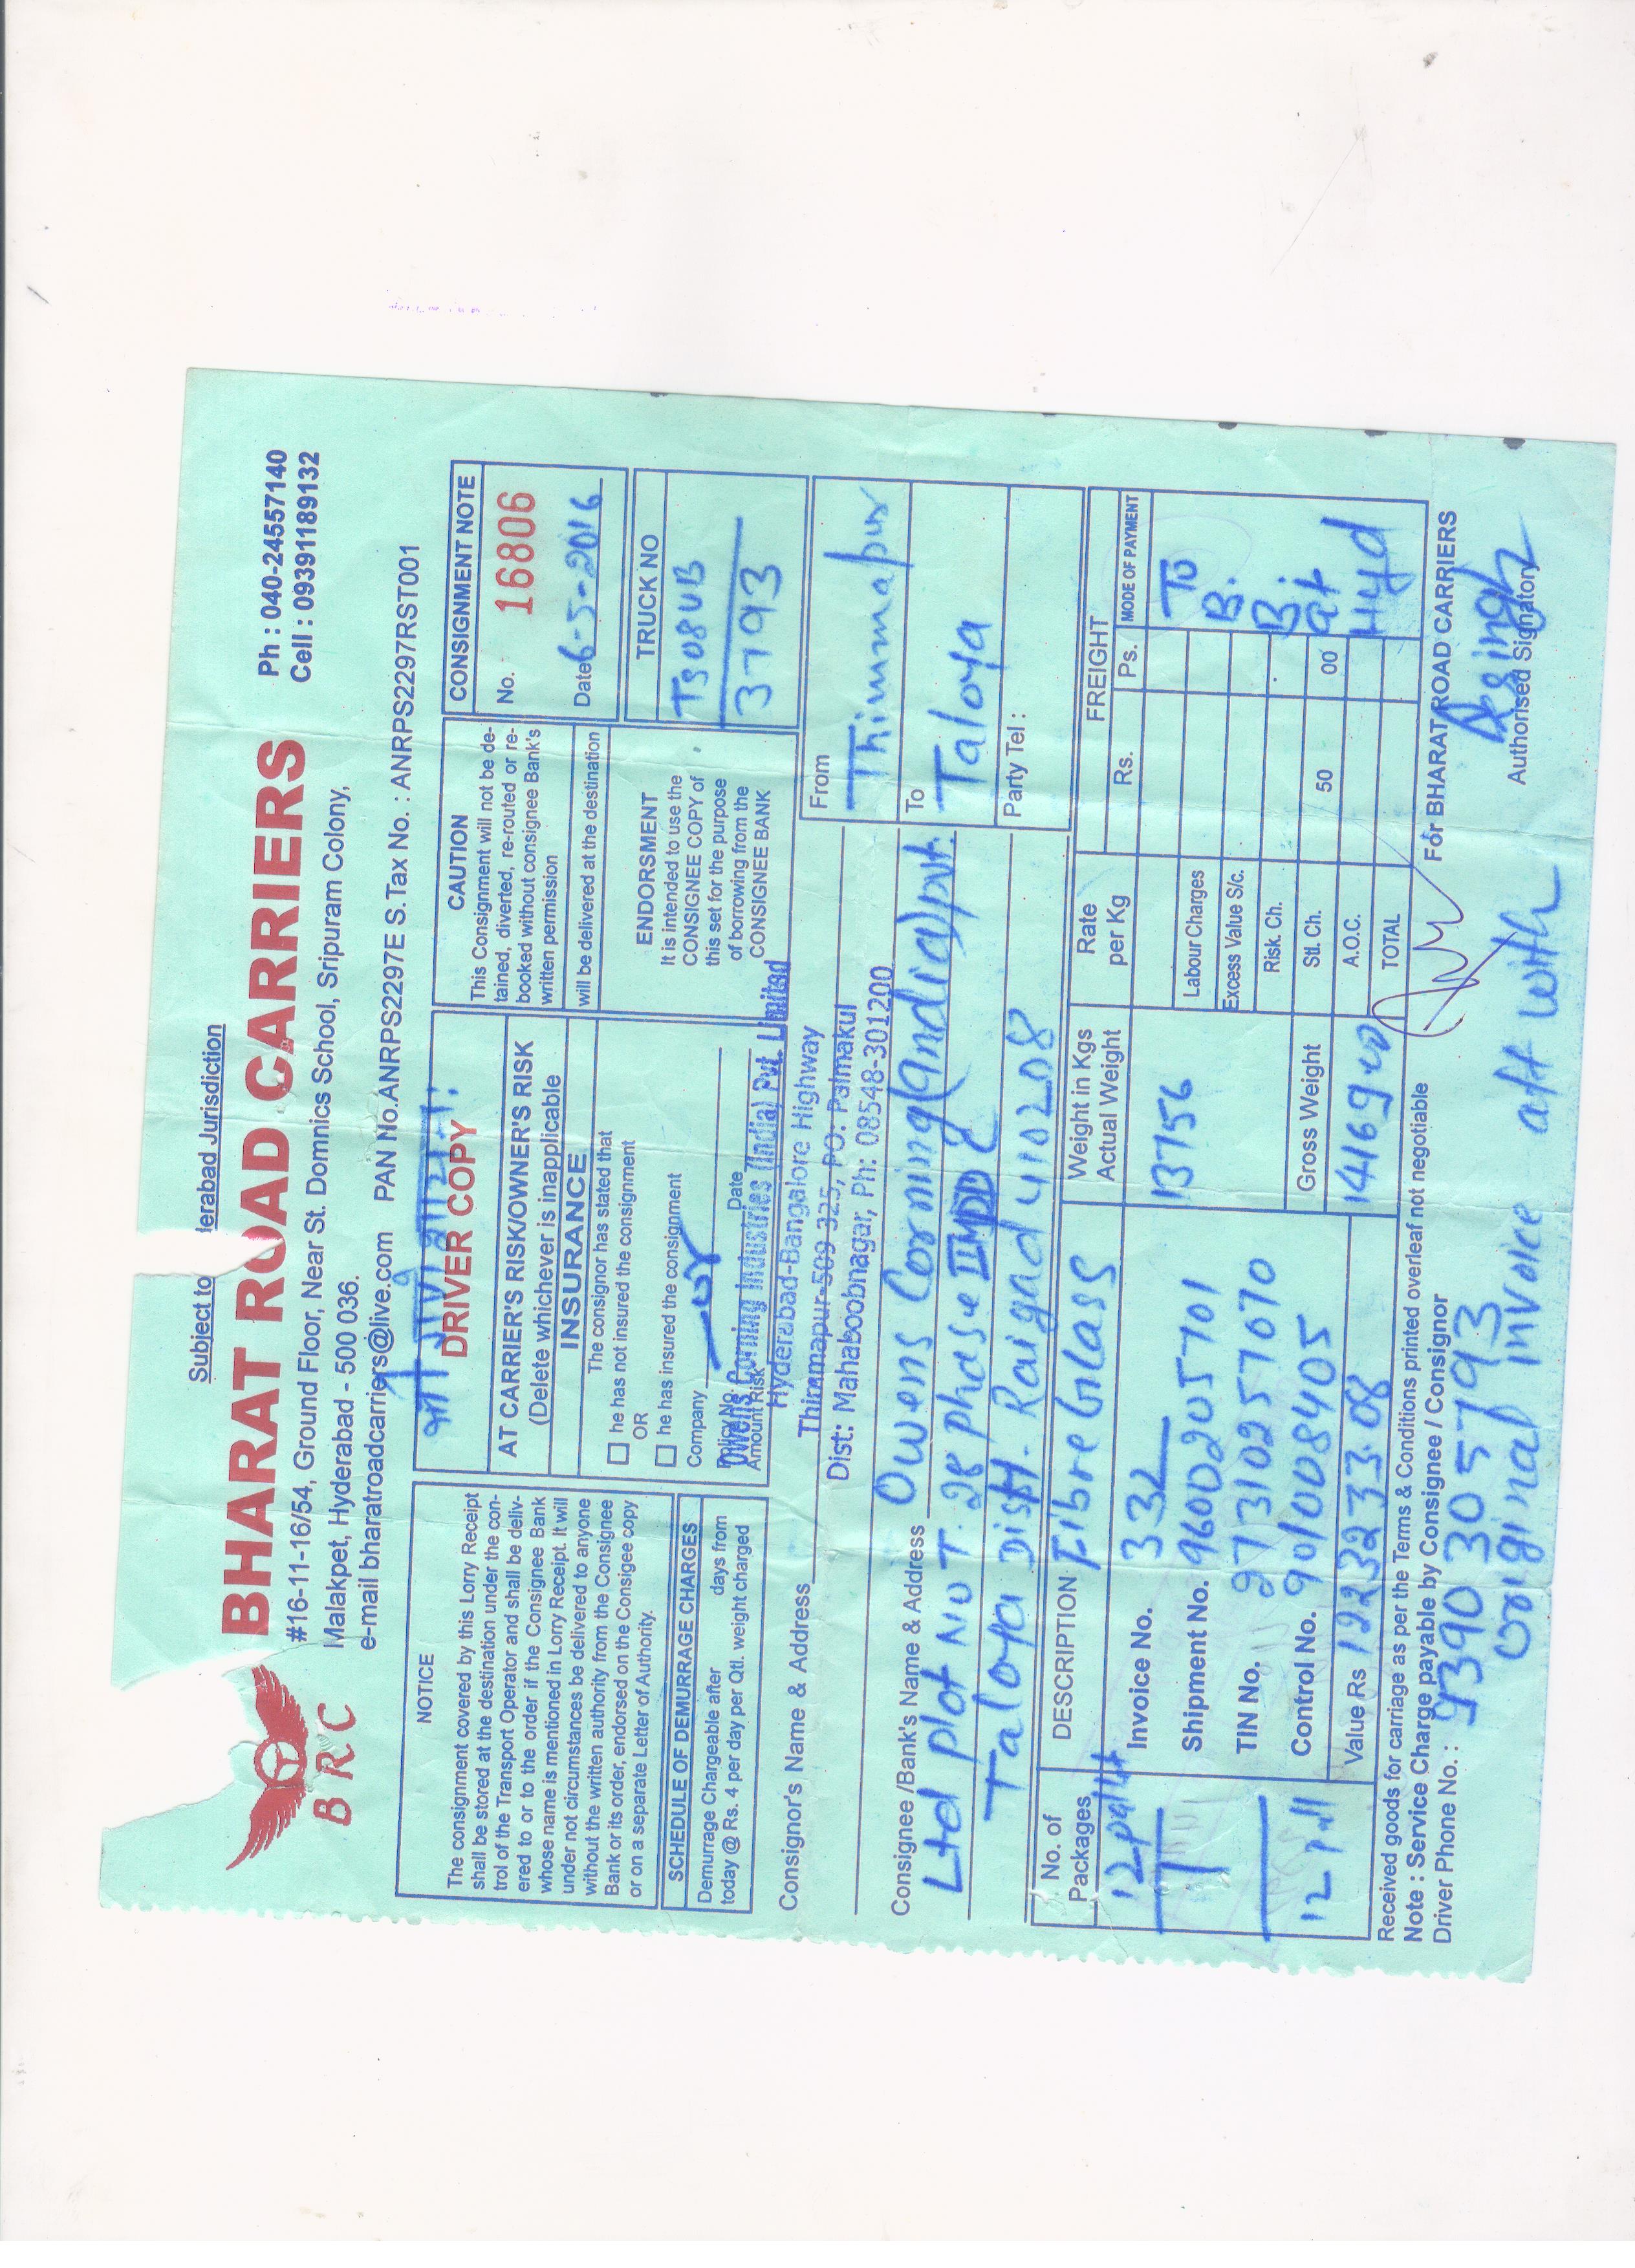 Subject to derabad Jurisdiction
BHARAT ROAD CARRIERS
BRC
#16-11-16/54, Ground Floor, Near St. Domnics School, Sripuram Colony,
Malakpet, Hyderabad - 500 036.
e-mail bharatroadcarriers@live.com PAN No.ANRPS2297E S.Tax No. : ANRPS2297RST001
Ph : 040-24557140
Cell : 09391189132
NOTICE
The consignment covered by this Lorry Receipt
shall be stored at the destination under the con-
trol of the Transport Operator and shall be deliv-
ered to or to the order if the Consignee Bank
whose name is mentioned in Lorry Receipt. It will
under not circumstances be delivered to anyone
without the written authority from the Consignee
Bank or its order, endorsed on the Consigee copy
or on a separate Letter of Authority.
SCHEDULE OF DEMURRAGE CHARGES
Demurrage Chargeable after days from
today @ Rs. 4 per day per Qtl. weight charged
DRIVER COPY
AT CARRIER'S RISK/OWNER'S RISK
(Delete whichever is inapplicable
INSURANCE
The consignor has stated that
he has not insured the consignment
OR
he has insured the consignment
Company
Policy No. Date
Amount Risk
CAUTION
This Consignment will not be de-
tained, diverted, re-routed or re-
booked without consignee Bank's
written permission
will be delivered at the destination
ENDORSMENT
It is intended to use the
CONSIGNEE COPY of
this set for the purpose
of borrowing from the
CONSIGNEE BANK
CONSIGNMENT NOTE
No. 16806
Date 6-5-2016
TRUCK NO
TS08UB
3793
Consignor's Name & Address
Owens Corning Industries (India) Pvt. Limited
Hyderabad-Bangalore Highway
Thimmapur-509 325, PO: Palmakul
Dist: Mahaboobnagar, Ph: 08548-301200
From
Thimmapur
To
Taloya
Party Tel :
Consignee /Bank's Name & Address Owens Corning (India) pvt.
Ltd plot No T. 28 phase II
Taloya Distt- Raigad 410208
No. of
Packages
12 pallet
12 pall
DESCRIPTION Fibre Glass
Invoice No. 332
Shipment No. 9600205701
TIN No. 27310257070
Control No. 901008405
Value Rs 1223233.08
Weight in Kgs
Actual Weight
13756
Gross Weight
14169
Rate
per Kg
Labour Charges
Excess Value S/c.
Risk. Ch.
Stl. Ch. 50 00
A.O.C.
TOTAL
FREIGHT
Rs. Ps. MODE OF PAYMENT
To
B.
B.
at
Hyd
Received goods for carriage as per the Terms & Conditions printed overleaf not negotiable
Note : Service Charge payable by Consignee / Consignor
Driver Phone No. : 9390305793
For BHARAT ROAD CARRIERS
Authorised Signatory
original invoice att with